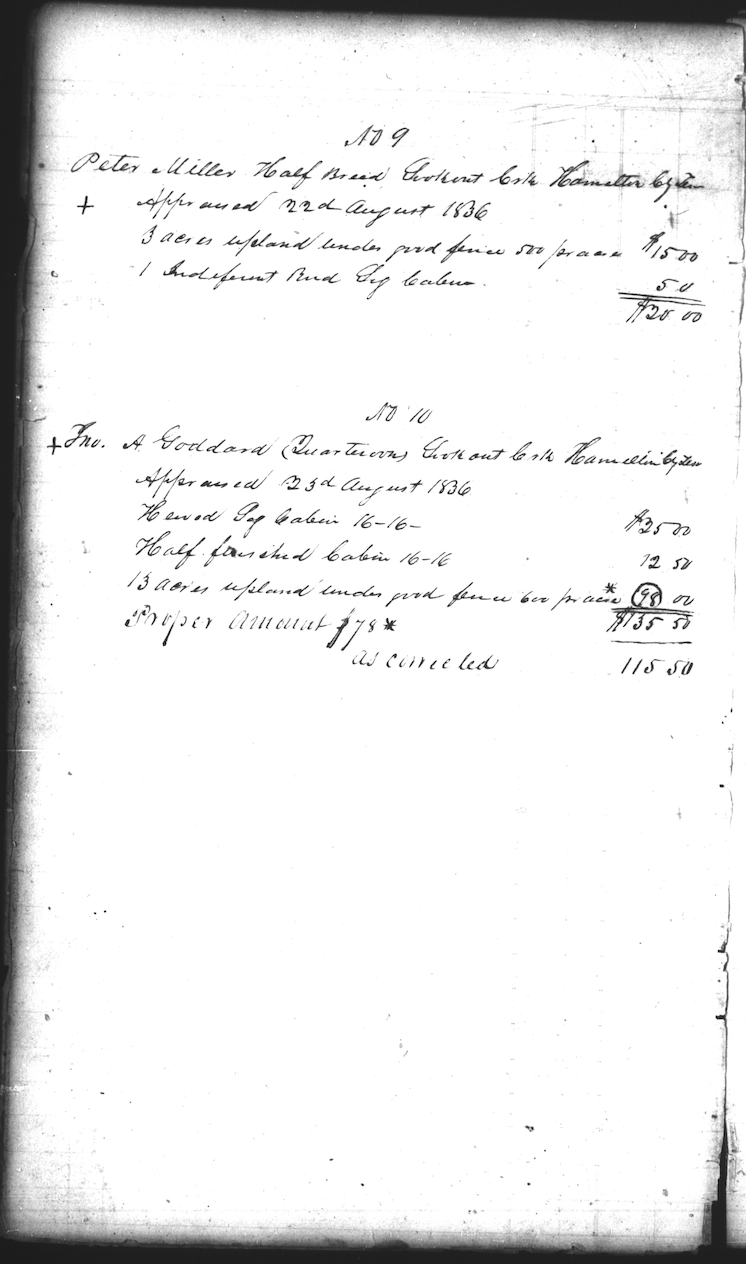 No 9
Peter Miller Half Breed Lookout Crk Hamelton Cy Ten
+ Appraised 22d August 1836
3 acres upland under good fence 500 pracre $15 00
1 Indeferent Rud Log Cabin. 5 0
$20 00
No 10
+ Jno. A Goddard (Quarteroon) Lookout Crk Hamelton Cy Ten
Appraised 23d August 1836
Hewed Log Cabin 16-16- $25 00
Half finished Cabin 16-16 12 50
13 acres upland under good fence 600 pracre * 98 00
Proper Amount $78 * $135 50
as corrected 115 50